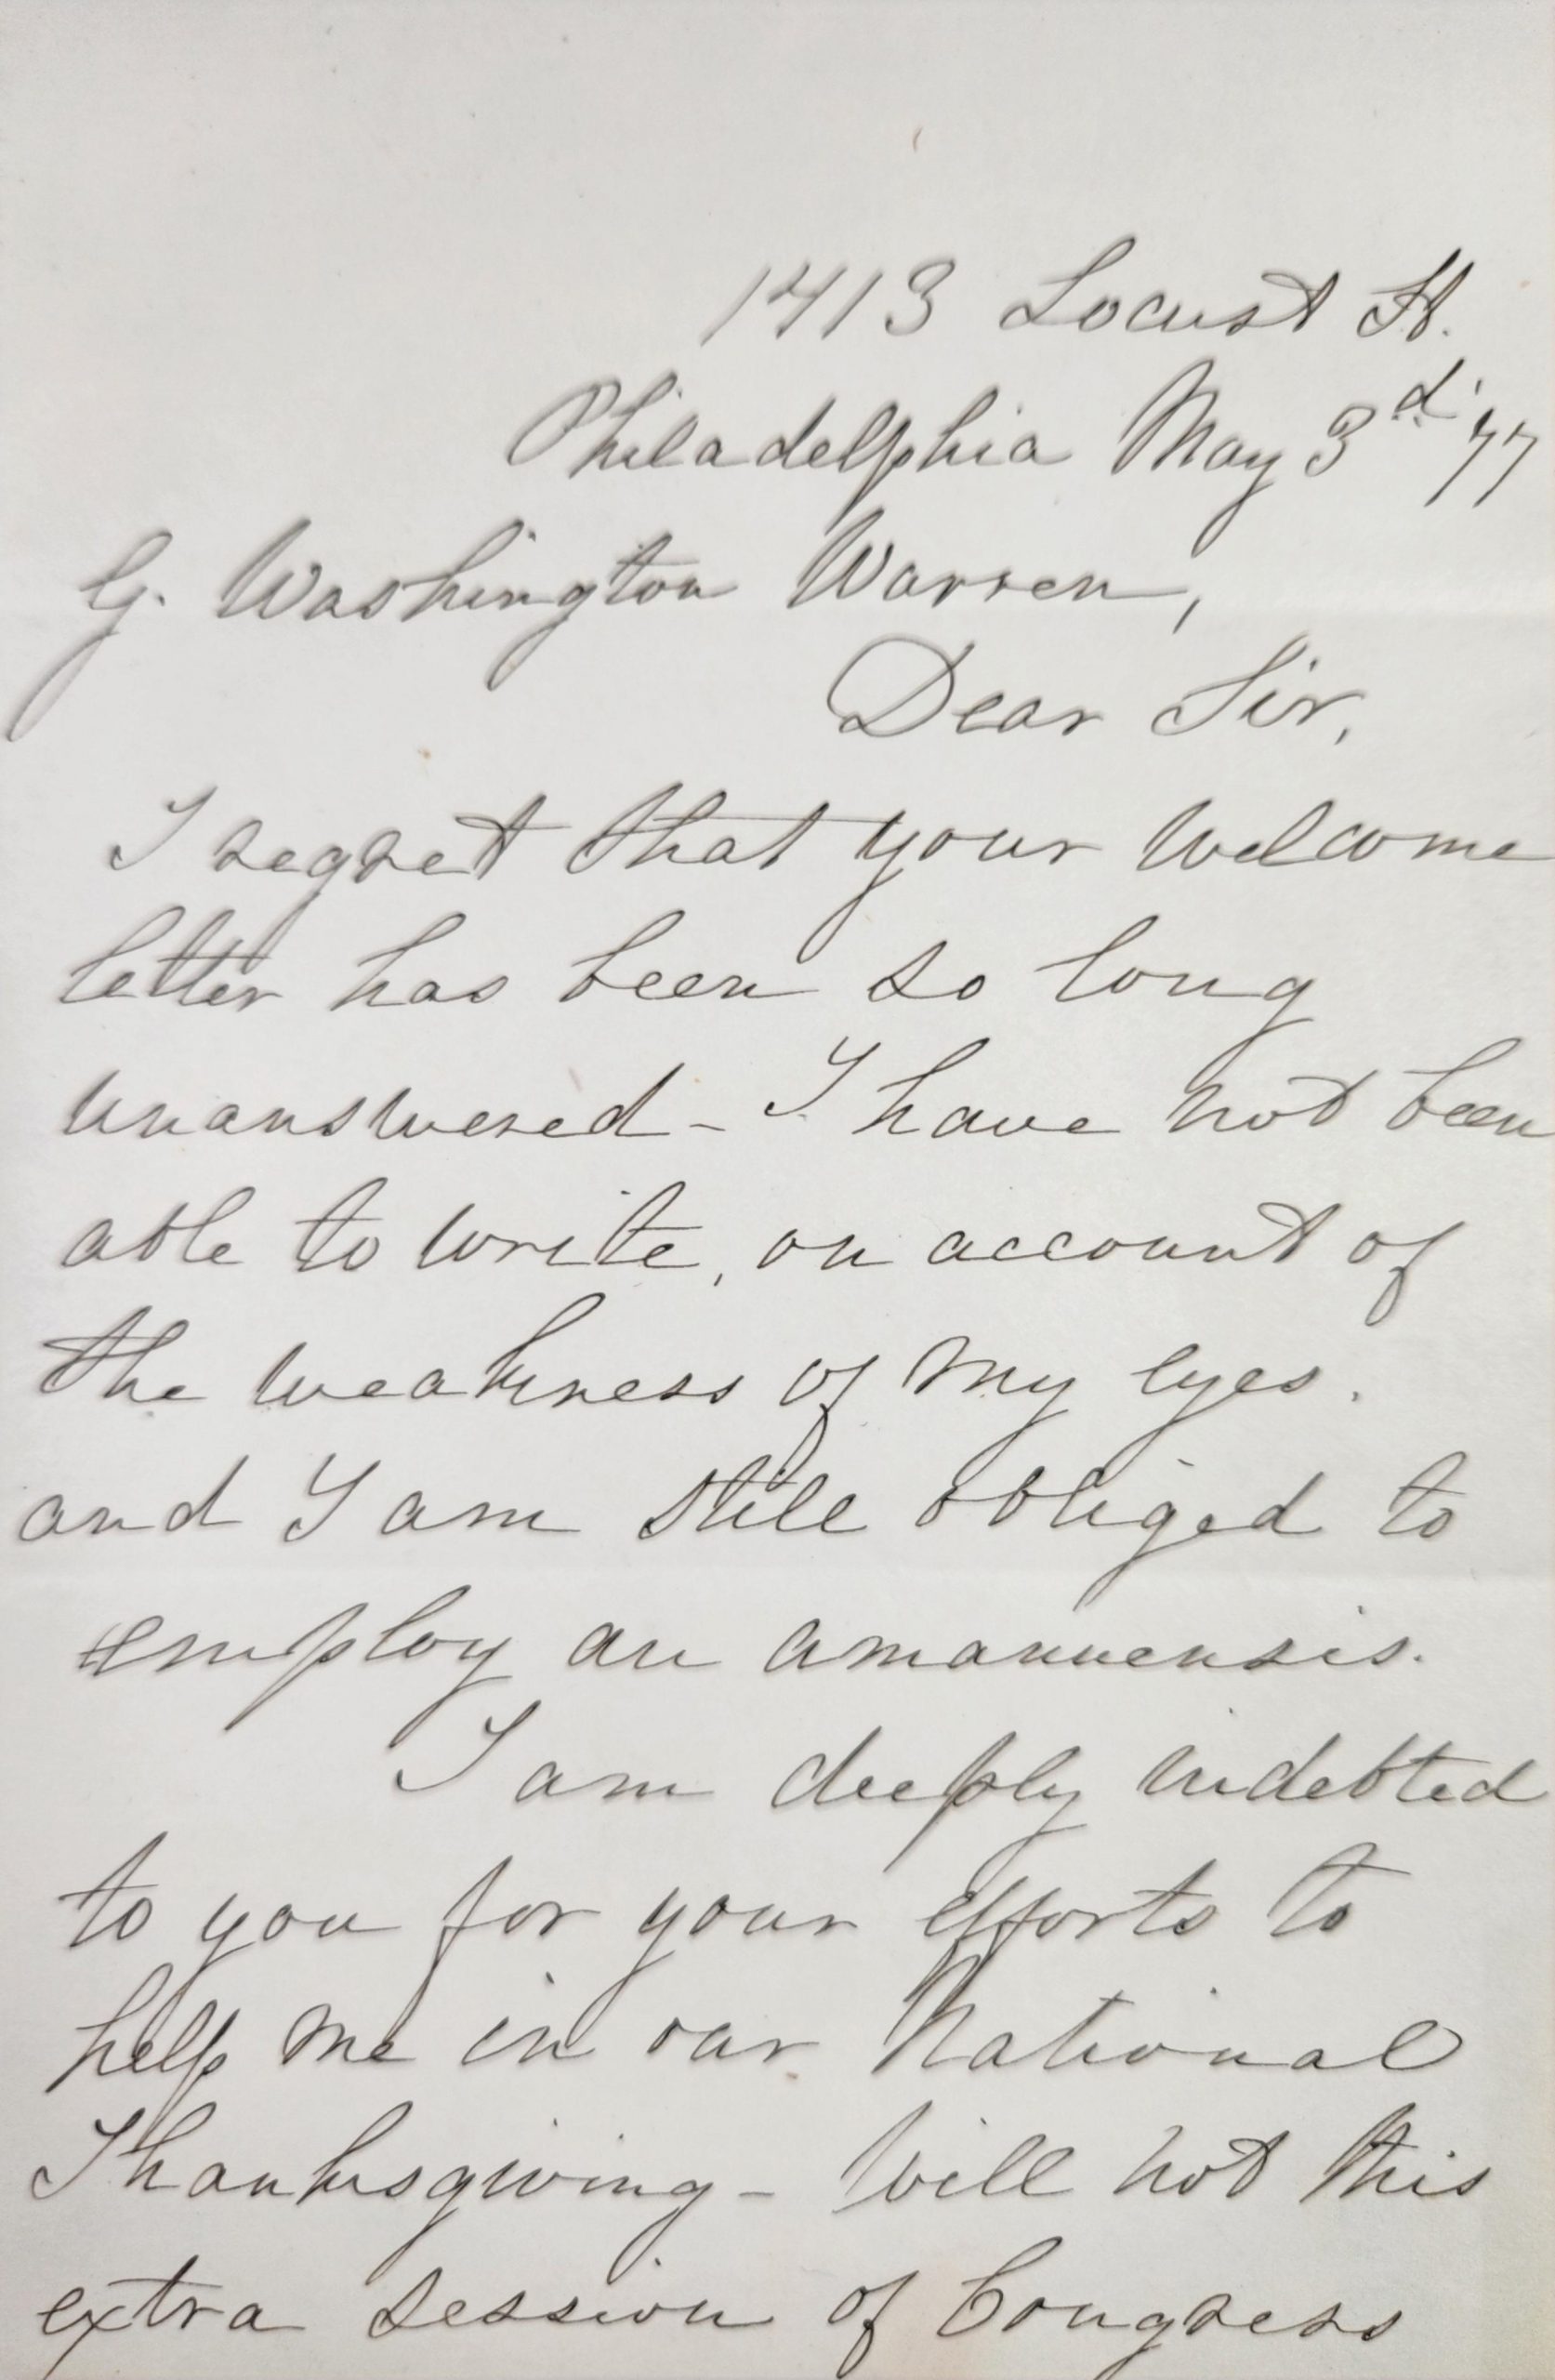 1413 Locust St.
Philadelphia May 3d '77
G. Washington Warren,
Dear Sir,
I regret that your welcome
letter has been so long
unanswered - I have not been
able to write, on account of
the weakness of my eyes.
and I am still obliged to
employ an amanuensis.
I am deeply indebted
to you for your efforts to
help me in our National
Thanksgiving - Will not this
extra session of Congress